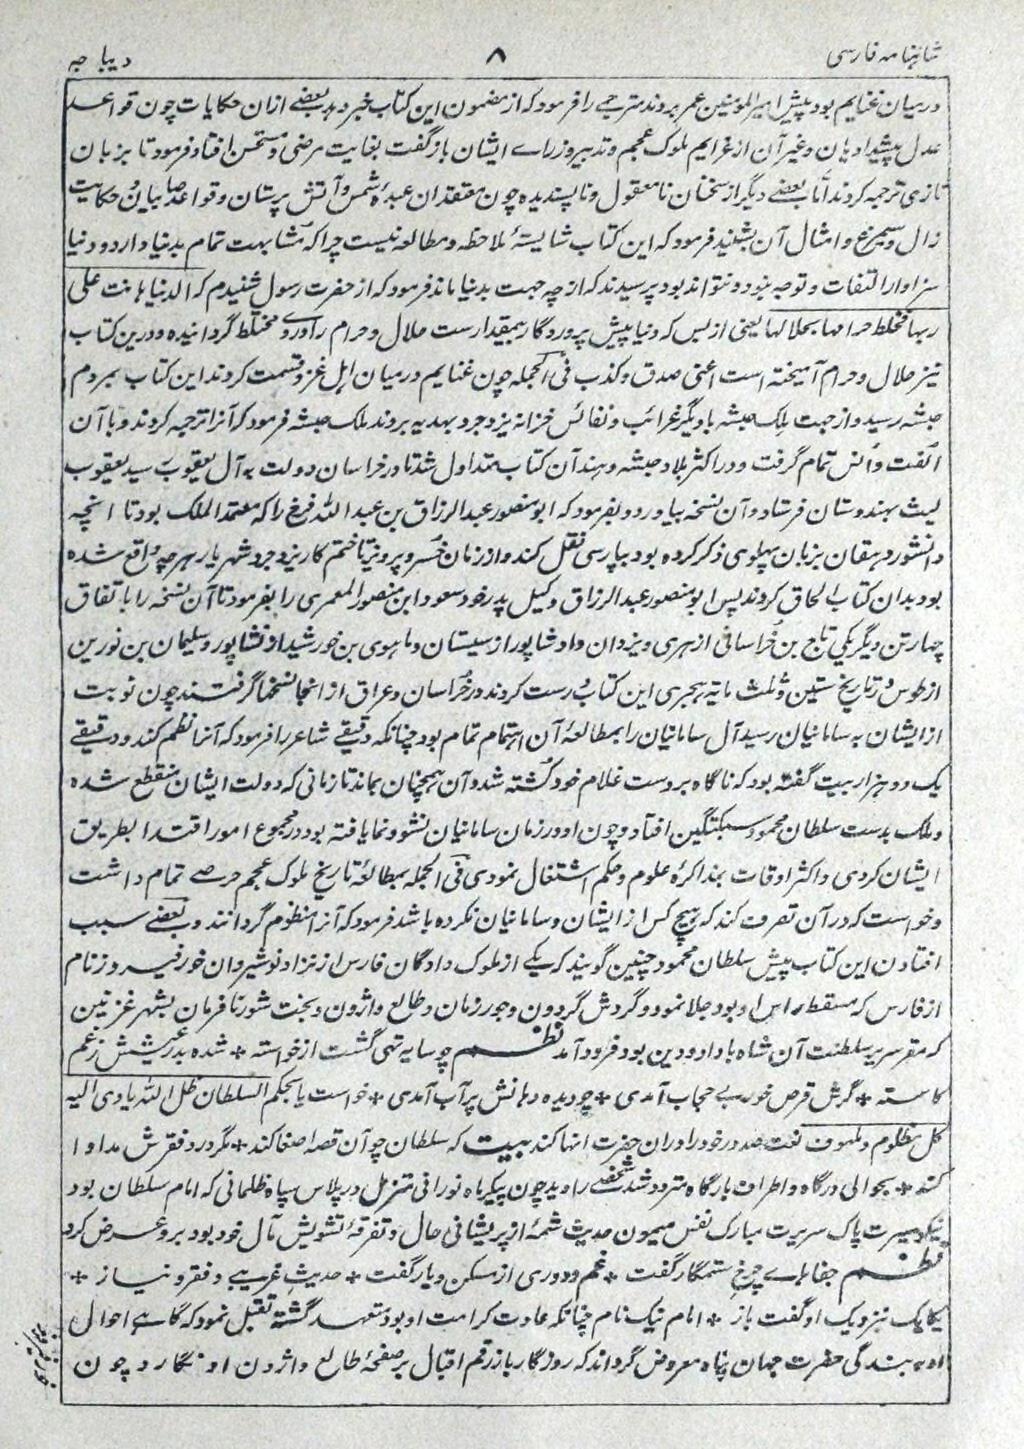 شاهنامه فارسی ۸ دیباچه
درمیان غنایم بود پیش امیرالمومنین عمر بردند مترجمے را فرمود که از مضمون این کتاب خبر دهد بعضے ازان حکایات چون قواعد
عدل پیشدادیان و غیر آن از غرایم ملوک عجم و تدبیر وزراے ایشان بازگفت بغایت مرضی و مستحسن افتاد فرمود تا بزبان
تازی ترجمه کردند اما بعضے دیگر از سخنان نامعقول و ناپسندیده چون معتقدان عبدۀ شمس و آتش پرستان و قواعد صابیان و حکایت
زال و سیمرغ و امثال آن بشنید فرمود که این کتاب شایستۀ ملاحظه و مطالعه نیست چرا که مشابهت تمام بدنیا دارد و دنیا
سزاوار التفات و توجه نبود و نتواند بود پرسیدند که از چه جهت بدنیا ماند فرمود که از حضرت رسول شنیدم که الدنیا هانت علی
ربها فخلط حرامها بحلالها یعنی از بس که دنیا پیش پروردگار بیمقدارست حلال و حرام را دروے مختلط گردانیده و درین کتاب
نیز حلال و حرام آمیخته است اعنی صدق و کذب فی الجمله چون غنایم درمیان اهل غزو قسمت کردند این کتاب بمردم
حبشه رسید و از جهت ملک حبشه با دیگر غرائب و نفائس خزانه یزدجرد بهدیه بردند ملک حبشه فرمود که آنرا ترجمه کردند و با آن
الفت و انس تمام گرفت و در اکثر بلاد حبشه و هند آن کتاب متداول شد تا در خراسان دولت به آل یعقوب رسید یعقوب
لیث بهندوستان فرستاد و آن نسخه بیاورد و بفرمود که ابومنصور عبدالرزاق بن عبدالله فرخ را که معتمد الملک بود تا آنچه
دانشور دهقان بزبان پهلوی ذکر کرده بود بپارسی نقل کند و از زمان خسرو پرویز تا ختم کار یزدجرد شهریار هرچه واقع شده
بود بدان کتاب الحاق کردند پس ابومنصور عبدالرزاق وکیل پدر خود سعود ابن منصور المعمری را بفرمود تا آن نسخه را باتفاق
چهار تن دیگر یکی تاج بن خراسانی از هری و یزدان داد شاپور از سیستان و ماهوی بن خورشید از نشاپور و سلیمان بن نورین
از طوس در تاریخ ستین و ثلث مایه هجری این کتاب درست کردند و در خراسان و عراق از انجا نسخها گرفتند چون نوبت
از ایشان به سامانیان رسید آل سامانیان را بمطالعۀ آن اهتمام تمام بود چنانکه دقیقے شاعر را فرمود که آنرا نظم کند و دقیقے
یک دو هزار بیت گفته بود که ناگاه بر دست غلام خود کشته شد و آن همچنان بماند تا زمانی که دولت ایشان منقطع شده
و ملک بدست سلطان محمود سبکتگین افتاد و چون او در زمان سامانیان نشو و نما یافته بود در مجموع امور اقتدا بطریق
ایشان کردی و اکثر اوقات بمذاکرۀ علوم و حکم اشتغال نمودی فی الجمله بمطالعۀ تاریخ ملوک عجم حرصے تمام داشت
و خواست که در آن تصرف کند که هیچ کس از ایشان و سامانیان نکرده باشد فرمود که آنرا منظوم گردانند و بعضے سبب
افتادن این کتاب پیش سلطان محمود چنین گویند که یکے از ملوک زادگان فارس از نژاد نوشیروان خورفیروز نام
از فارس که مسقط راس او بود جلا نمود و گردش گردون و جور زمان و طالع واژون و بخت شور تا فرمان بشهر غزنین
که مقر سریر سلطنت آن شاه با داد و دین بود فرود آمد نظم چو سایه تهی گشت از خواسته * شده بدر عیشش ز غم
کاسته * گرش قرص خور بے حجاب آمدی * چو دیده دهانش پر آب آمدی * خواست یا بحکم السلطان ظل الله یاوی الیه
کل مظلوم و ملهوف نعت صدر خود را دران حضرت انها کند بیت که سلطان چو آن قصه اصغا کند * مگر درد فقرش مداوا
کند * بحوالی درگاه و اطراف بارگاه متردد شد شخصے را دید چون پیکر ماه نورانی متزمل در پلاس سیاه ظلمانی که امام سلطان بود
نیکو سیرت پاک سریرت مبارک نفس میمون حدیث شمۀ از پریشانی حال و تفرقۀ تشویش مآل خود بود بر و عرض کرد
نظم جفاهاے چرخ ستمگار گفت * غم و دوری از مسکن و یار گفت * حدیث غریبے و فقر و نیاز *
یکایک بنزدیک او گفت باز * امام نیک نام چنانکه عادت کرامت او بود متعهد گشته تقبل نمود که گاهے احوال
او به بندگی حضرت جهان پناه معروض گرداند که روزگار باز رقم اقبال بر صفحۀ طالع واژدن او نگارد چون